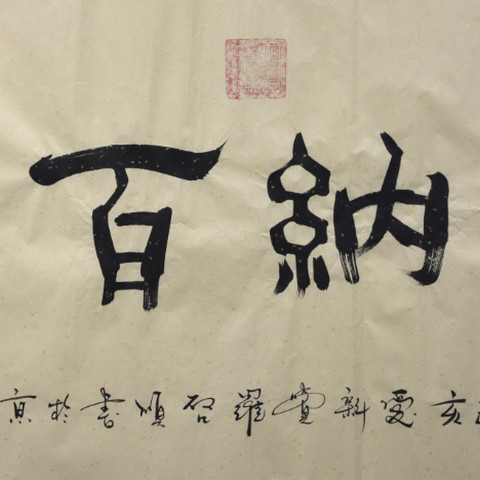 納百
亥愛新覺羅启順書於京